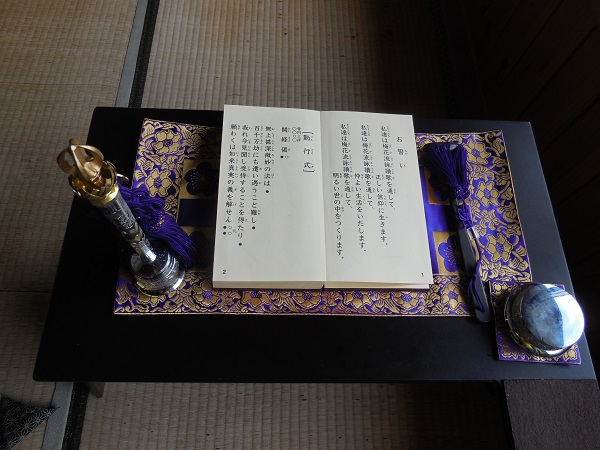 お誓い
私達は梅花流詠讃歌を通して、
正しい信仰に生きます。
私達は梅花流詠讃歌を通して、
仲よい生活をいたします。
私達は梅花流詠讃歌を通して、
明るい世の中をつくります。
1
【勤行式】
開経偈
無上甚深微妙の法は
百千万劫にも遭い遇うこと難し
我れ今見聞し受持することを得たり
願わくは如来真実の義を解せん
2